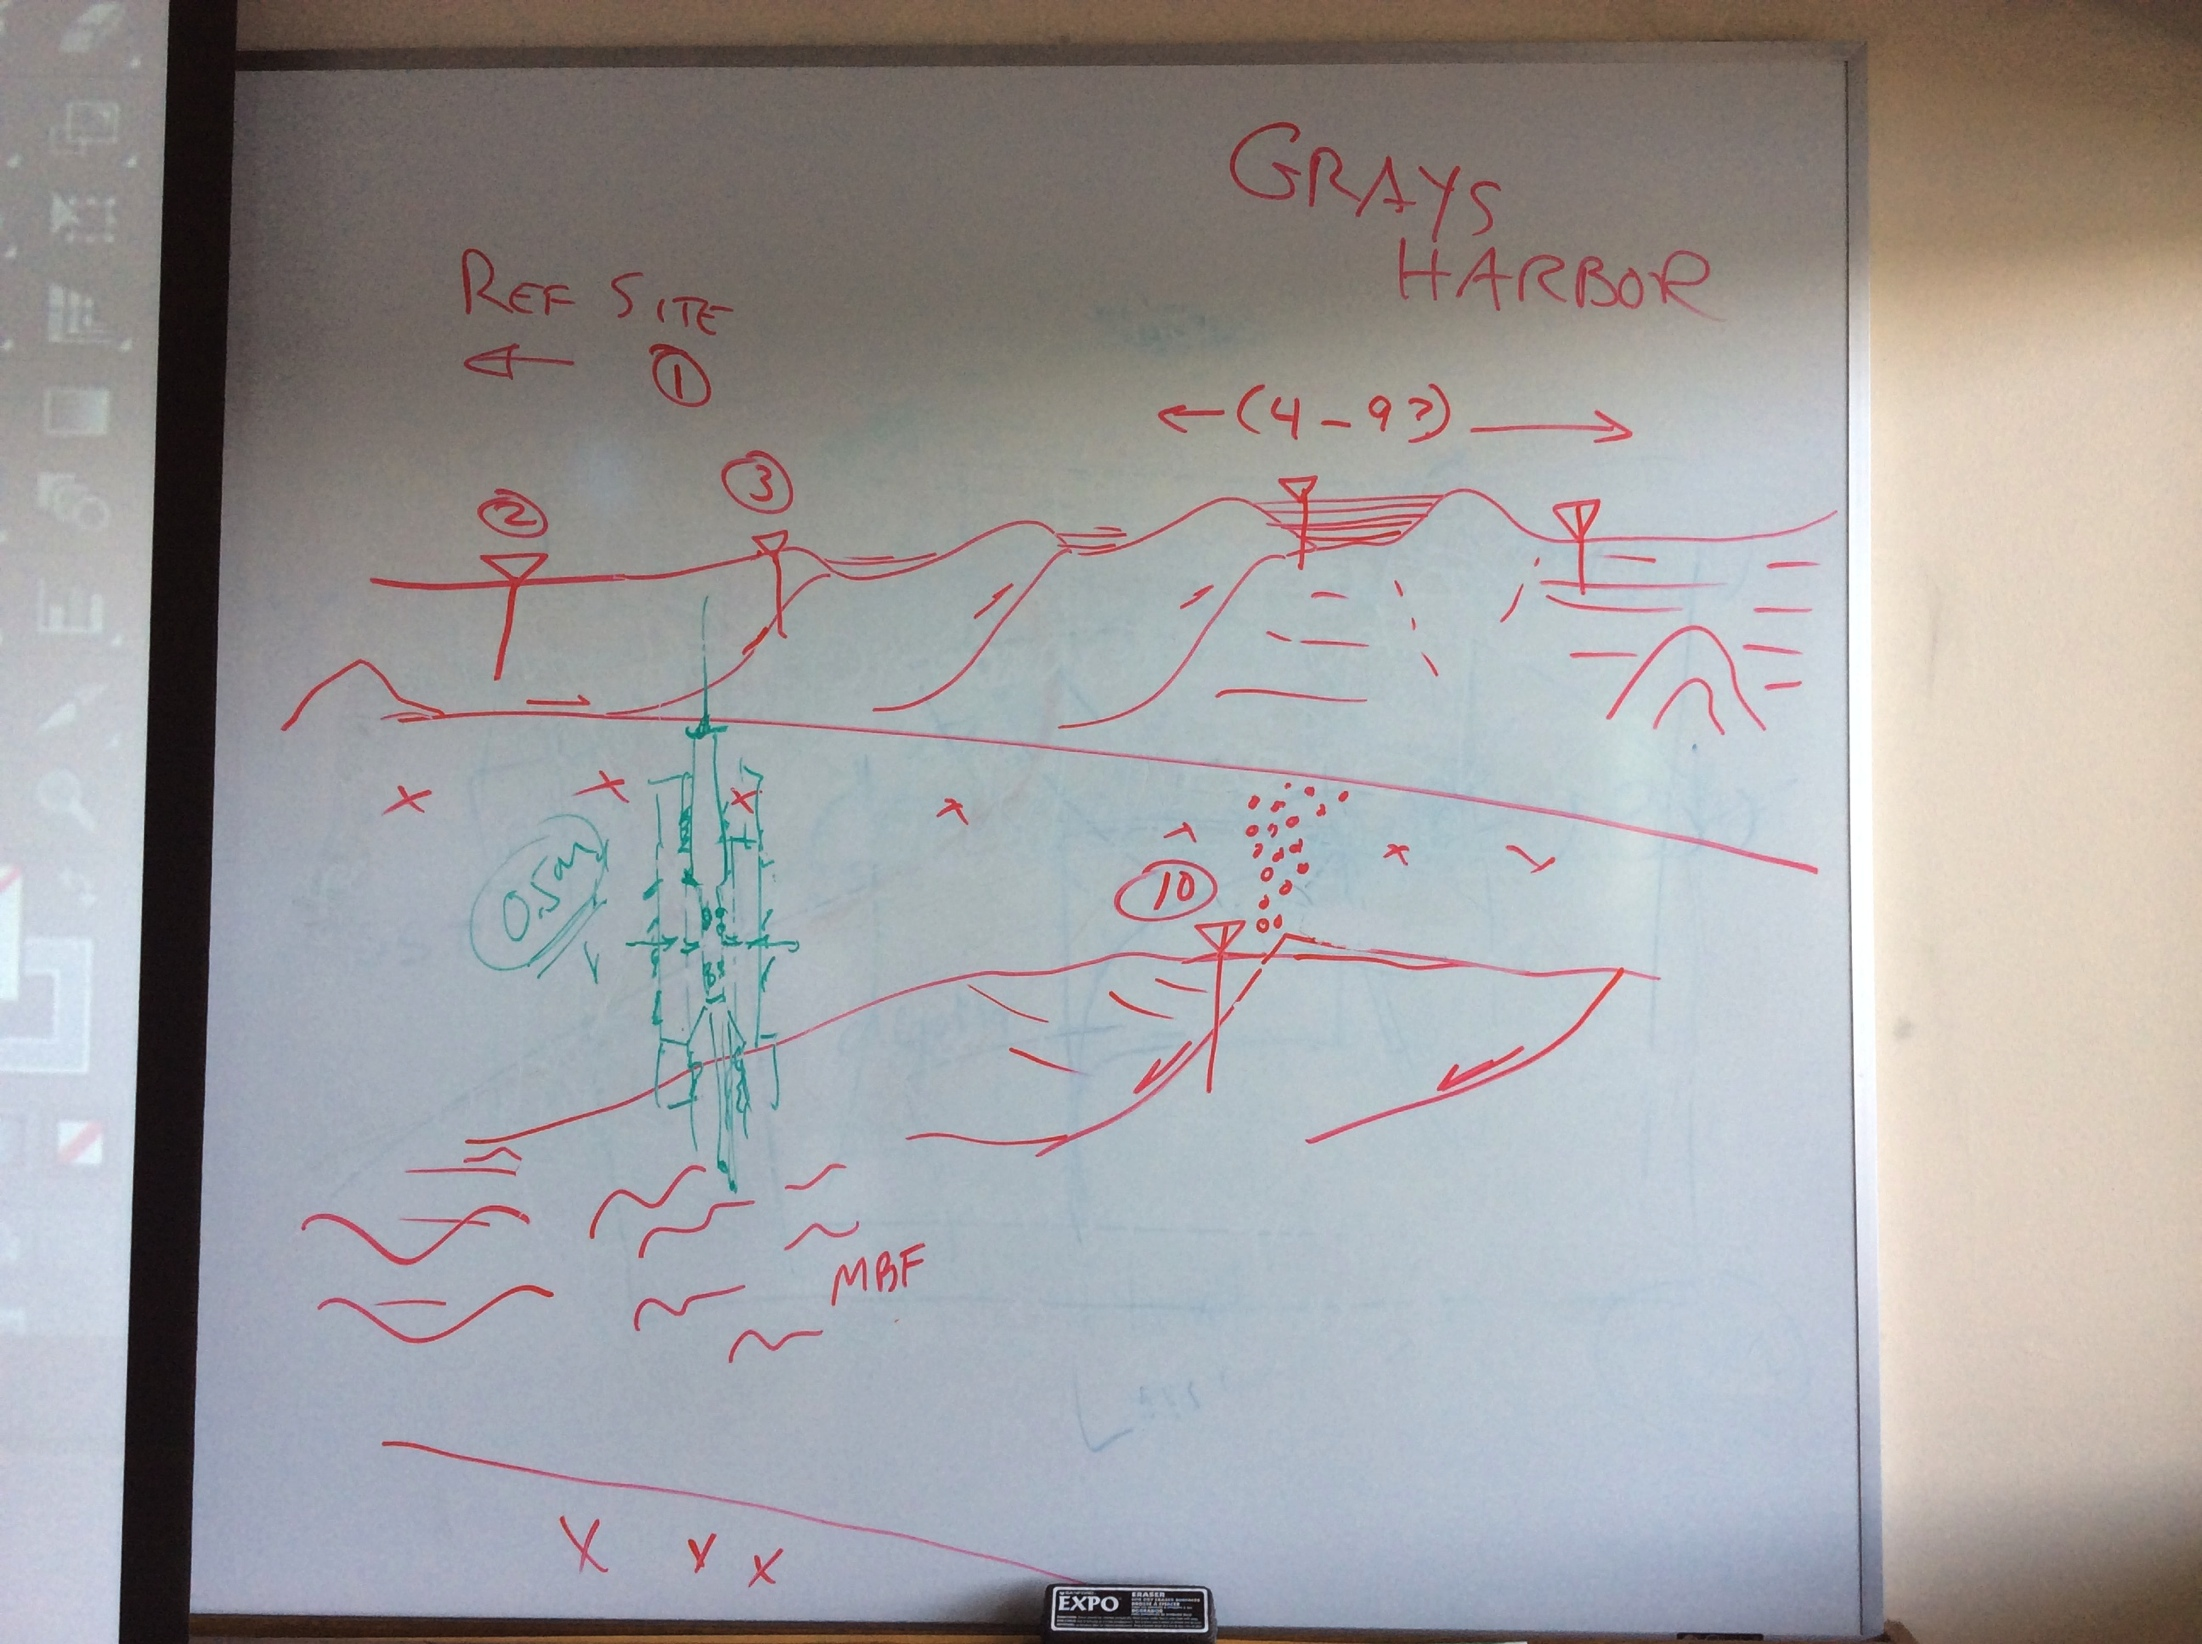 GRAYS
HARBOR
REF SITE
1
(4-9?)
3
2
0.5m
10
MBF
EXPO
ERASER